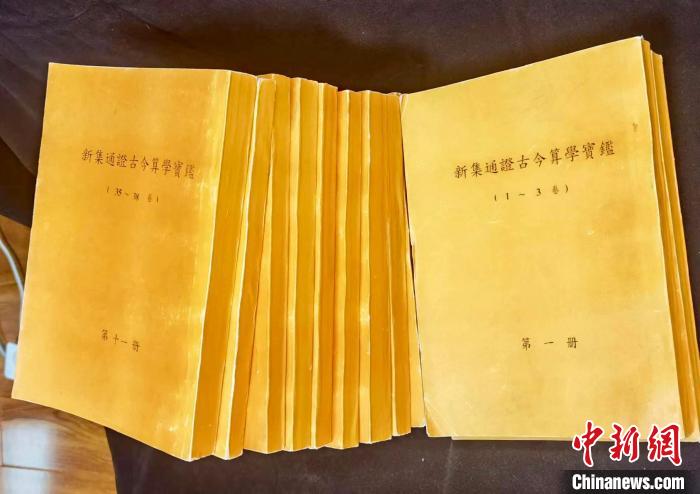 新集通證古今算學寶鑑
(35~38 卷)
第十一册
新集通證古今算學寶鑑
(1~3卷)
第一册
中新网
Chinanews.com